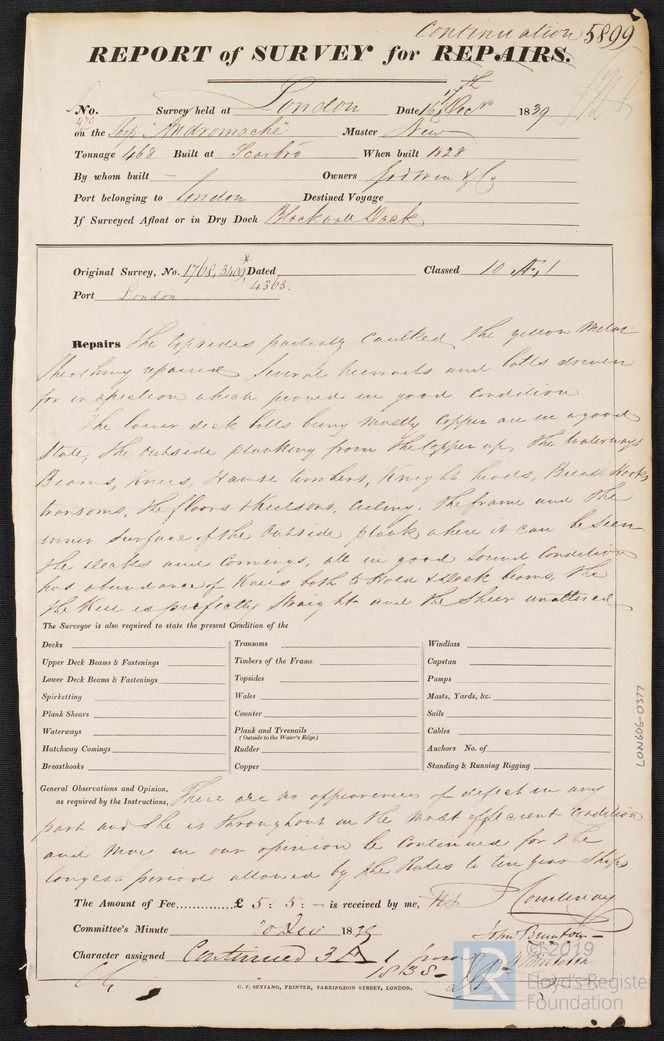 Continuation 5899
REPORT of SURVEY for REPAIRS.
No. 479 Survey held at London Date 16, 17th Decr 1839
on the Ship "Andromache" Master New
Tonnage 468 Built at Scarbro When built 1828
By whom built — Owners Godwin & Co
Port belonging to London Destined Voyage
If Surveyed Afloat or in Dry Dock Blackwall Dock
Original Survey, No. 1768, 3409, Dated Classed 10 A, 1
4365.
Port London
Repairs The topsides partially caulked the yellow metal
Sheathing repaired Several treenails and bolts driven
for inspection which proved in good condition
The lower deck bolts being mostly Copper are in a good
State, the outside planking from the Copper up, the waterways
Beams, Knees, Hawse timbers, Knight heads, Breast Hooks
transoms, the floors & Keelsons, Ceiling, the frame and the
inner Surface of the Outside plank where it can be seen
the decks and Comings, all in good Sound Condition
has abundance of Knees both to Hold & Deck beams, the
the Keel is perfectly Straight and the Sheer unaltered
The Surveyor is also required to state the present Condition of the
Decks Transoms Windlass
Upper Deck Beams & Fastenings Timbers of the Frame Capstan
Lower Deck Beams & Fastenings Topsides Pumps
Spirketting Wales Masts, Yards, &c.
Plank Shears Counter Sails
Waterways Plank and Treenails Cables
(Outside to the Water's Edge)
Hatchway Comings Rudder Anchors No. of
Breasthooks Copper Standing & Running Rigging
General Observations and Opinion, There are no appearances of defect in any
as required by the Instructions,
part and She is throughout in the most efficient Condition
and may in our opinion be Continued for the
longest period allowed by the Rules to ten year Ships
The Amount of Fee............£ 5 : 5 : – is received by me, P Courtenay
Committee's Minute 20 Dec 1839
John Brunton
Character assigned Continued 3 A 1 from
1838
C. F. SEYFANG, PRINTER, FARRINGDON STREET, LONDON.
LON606-0377
LR
© 2019
Lloyd's Register
Foundation